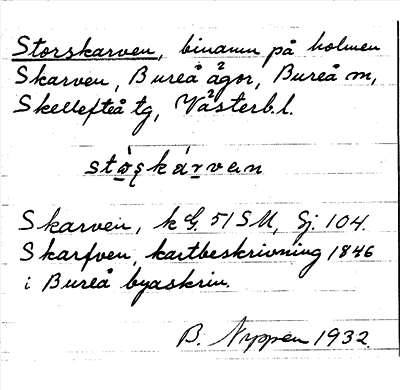 Storskarven, binamn på holmen
Skarven, Bureå ägor, Bureå m,
Skellefteå tg, Västerb.l.
Skarven, k G. 51 SM, Sj. 104.
Skarfven, kartbeskrivning 1846
i Bureå byaskrin.
B. Nyppen 1932